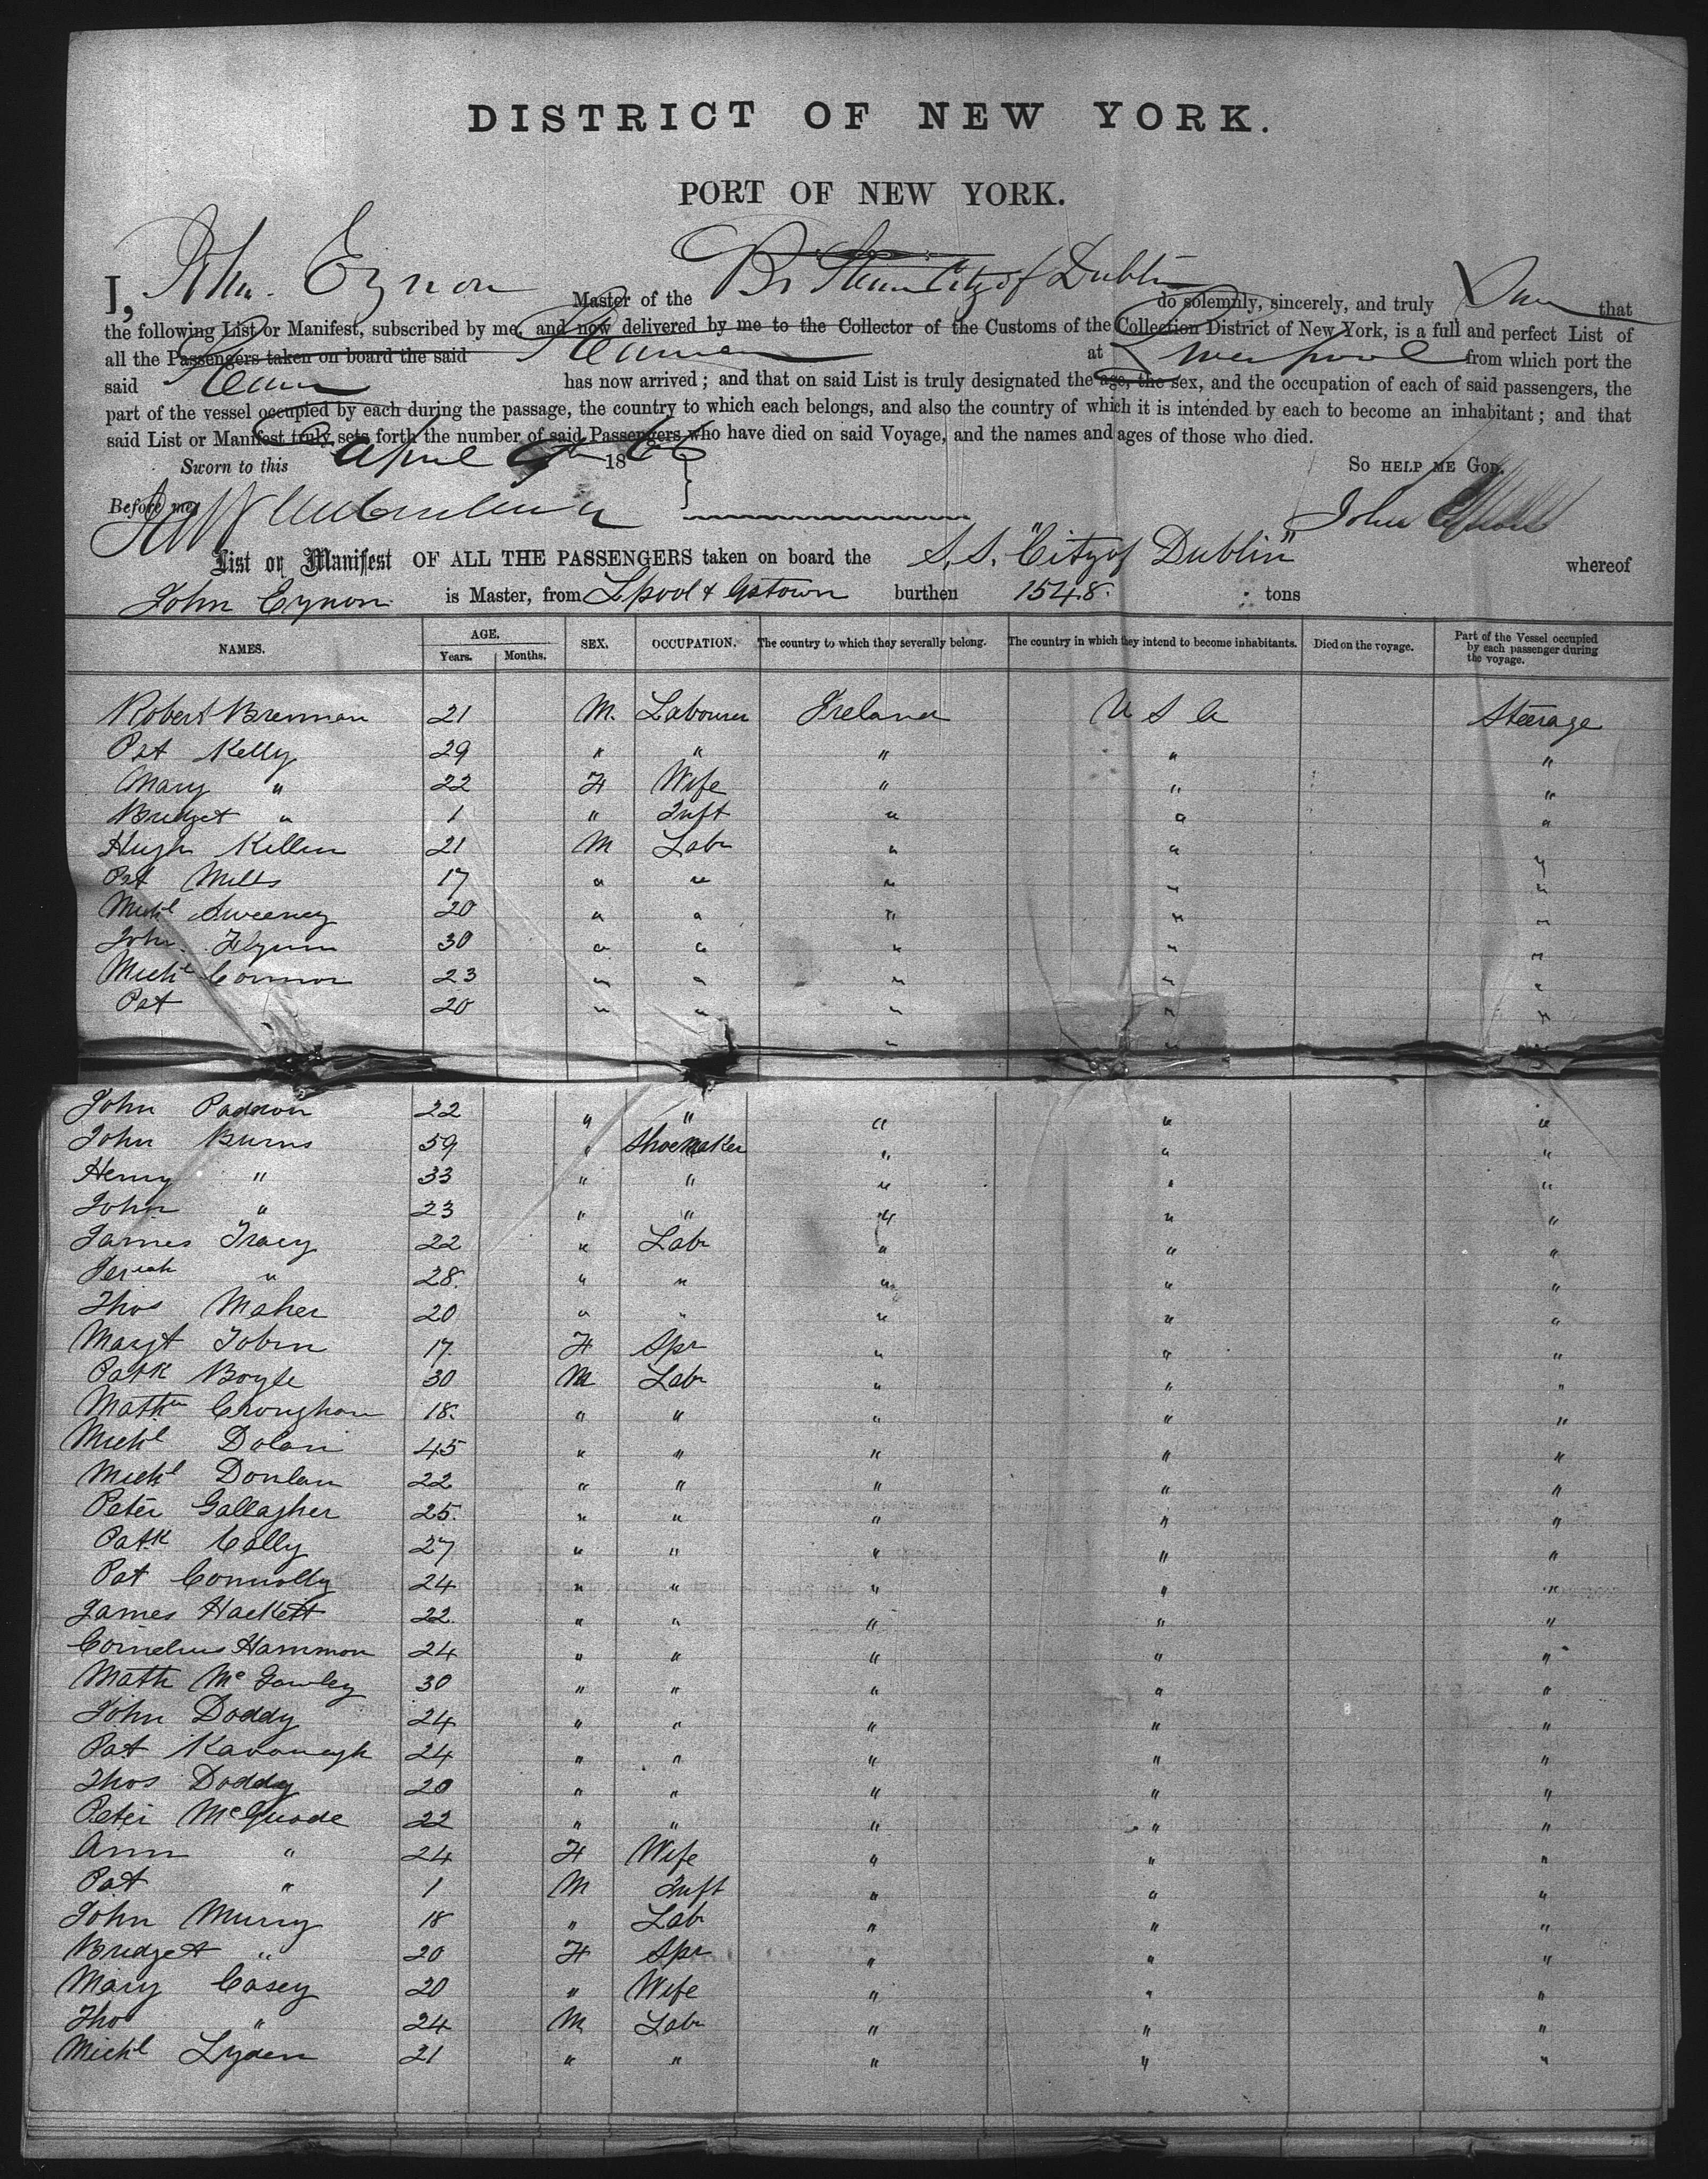 DISTRICT OF NEW YORK.
PORT OF NEW YORK.
I, John Eynon Master of the Br Steam City of Dublin do solemnly, sincerely, and truly that
the following List or Manifest, subscribed by me, and now delivered by me to the Collector of the Customs of the Collection District of New York, is a full and perfect List of
all the Passengers taken on board the said Steamer at Liverpool from which port the
said Steamer has now arrived; and that on said List is truly designated the age, the sex, and the occupation of each of said passengers, the
part of the vessel occupied by each during the passage, the country to which each belongs, and also the country of which it is intended by each to become an inhabitant; and that
said List or Manifest truly sets forth the number of said Passengers who have died on said Voyage, and the names and ages of those who died.
Sworn to this April 9th 1866 So HELP ME GOD.
Before me, John Eynon
List or Manifest OF ALL THE PASSENGERS taken on board the S.S. "City of Dublin" whereof
John Eynon is Master, from Lpool & Qstown burthen 1548. tons
NAMES. AGE. Years. Months. SEX. OCCUPATION. The country to which they severally belong. The country in which they intend to become inhabitants. Died on the voyage. Part of the Vessel occupied by each passenger during the voyage.
Robert Brennan 21 M. Labourer Ireland U S A Steerage
Pat Kelly 29 " " " " "
Mary " 22 F Wife " " "
Bridget " 1 " Inft " " "
Hugh Killen 21 M Labr " " "
Pat Mills 17 " " " " "
Michl Sweeney 20 " " " " "
John Flynn 30 " " " " "
Michl Connor 23 " " " " "
Pat 20 " " " " "
" " "
John Paddon 22 " " " " "
John Burns 59 " Shoemaker " " "
Henry " 33 " " " " "
John " 23 " " " " "
James Tracy 22 " Labr " " "
Jeriah " 28. " " " " "
Thos Maher 20 " " " " "
Margt Tobin 17. F Spr " " "
Patk Boyle 30 M Labr " " "
Mathw Croughan 18. " " " " "
Michl Dolan 45 " " " " "
Michl Donlan 22 " " " " "
Peter Gallagher 25. " " " " "
Patk Cally 27 " " " " "
Pat Connolly 24 " " " " "
James Hackett 22. " " " " "
Cornelius Hammon 24 " " " " "
Math Mc Gowley 30 " " " " "
John Doddy 24 " " " " "
Pat Kavanagh 24 " " " " "
Thos Doddy 20 " " " " "
Peter McQuade 22 " " " " "
Ann " 24 F Wife " " "
Pat " 1 M Inft " " "
John Murry 18 " Lab " " "
Bridget " 20 F Spr " " "
Mary Casey 20 " Wife " " "
Tho " 24 M Labr " " "
Michl Lyden 21 " " " " "